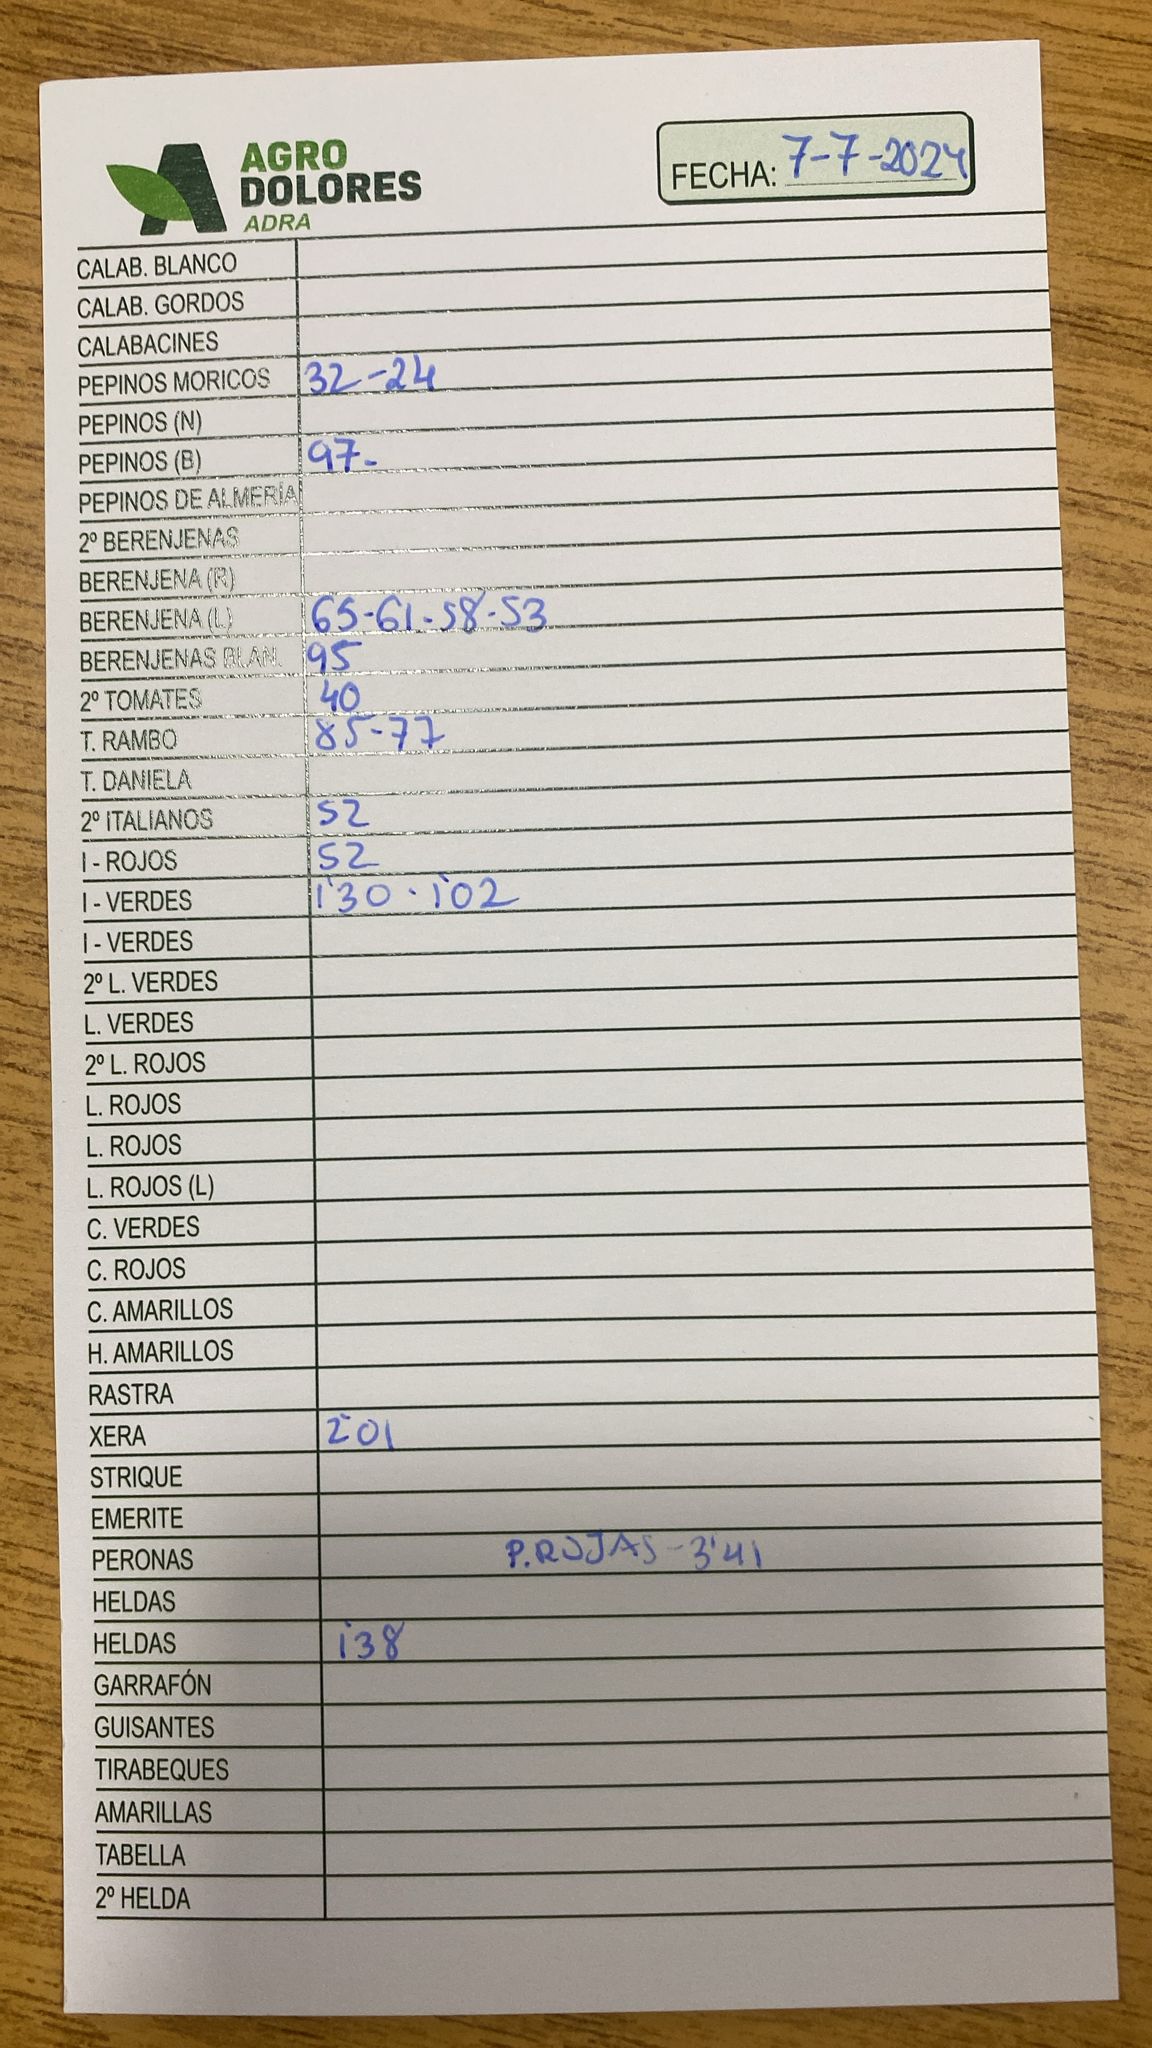 AGRO
DOLORES
ADRA
FECHA: 7-7-2024
CALAB. BLANCO
CALAB. GORDOS
CALABACINES
PEPINOS MORICOS 32-24
PEPINOS (N)
PEPINOS (B) 97-
PEPINOS DE ALMERÍA
2º BERENJENAS
BERENJENA (R)
BERENJENA (L) 65-61-58-53
BERENJENAS BLAN. 95
2º TOMATES 40
T. RAMBO 85-77
T. DANIELA
2º ITALIANOS 52
I - ROJOS 52
I - VERDES 1'30 - 1'02
I - VERDES
2º L. VERDES
L. VERDES
2º L. ROJOS
L. ROJOS
L. ROJOS
L. ROJOS (L)
C. VERDES
C. ROJOS
C. AMARILLOS
H. AMARILLOS
RASTRA
XERA 2'01
STRIQUE
EMERITE
PERONAS P.ROJAS - 3'41
HELDAS
HELDAS 1'38
GARRAFÓN
GUISANTES
TIRABEQUES
AMARILLAS
TABELLA
2º HELDA